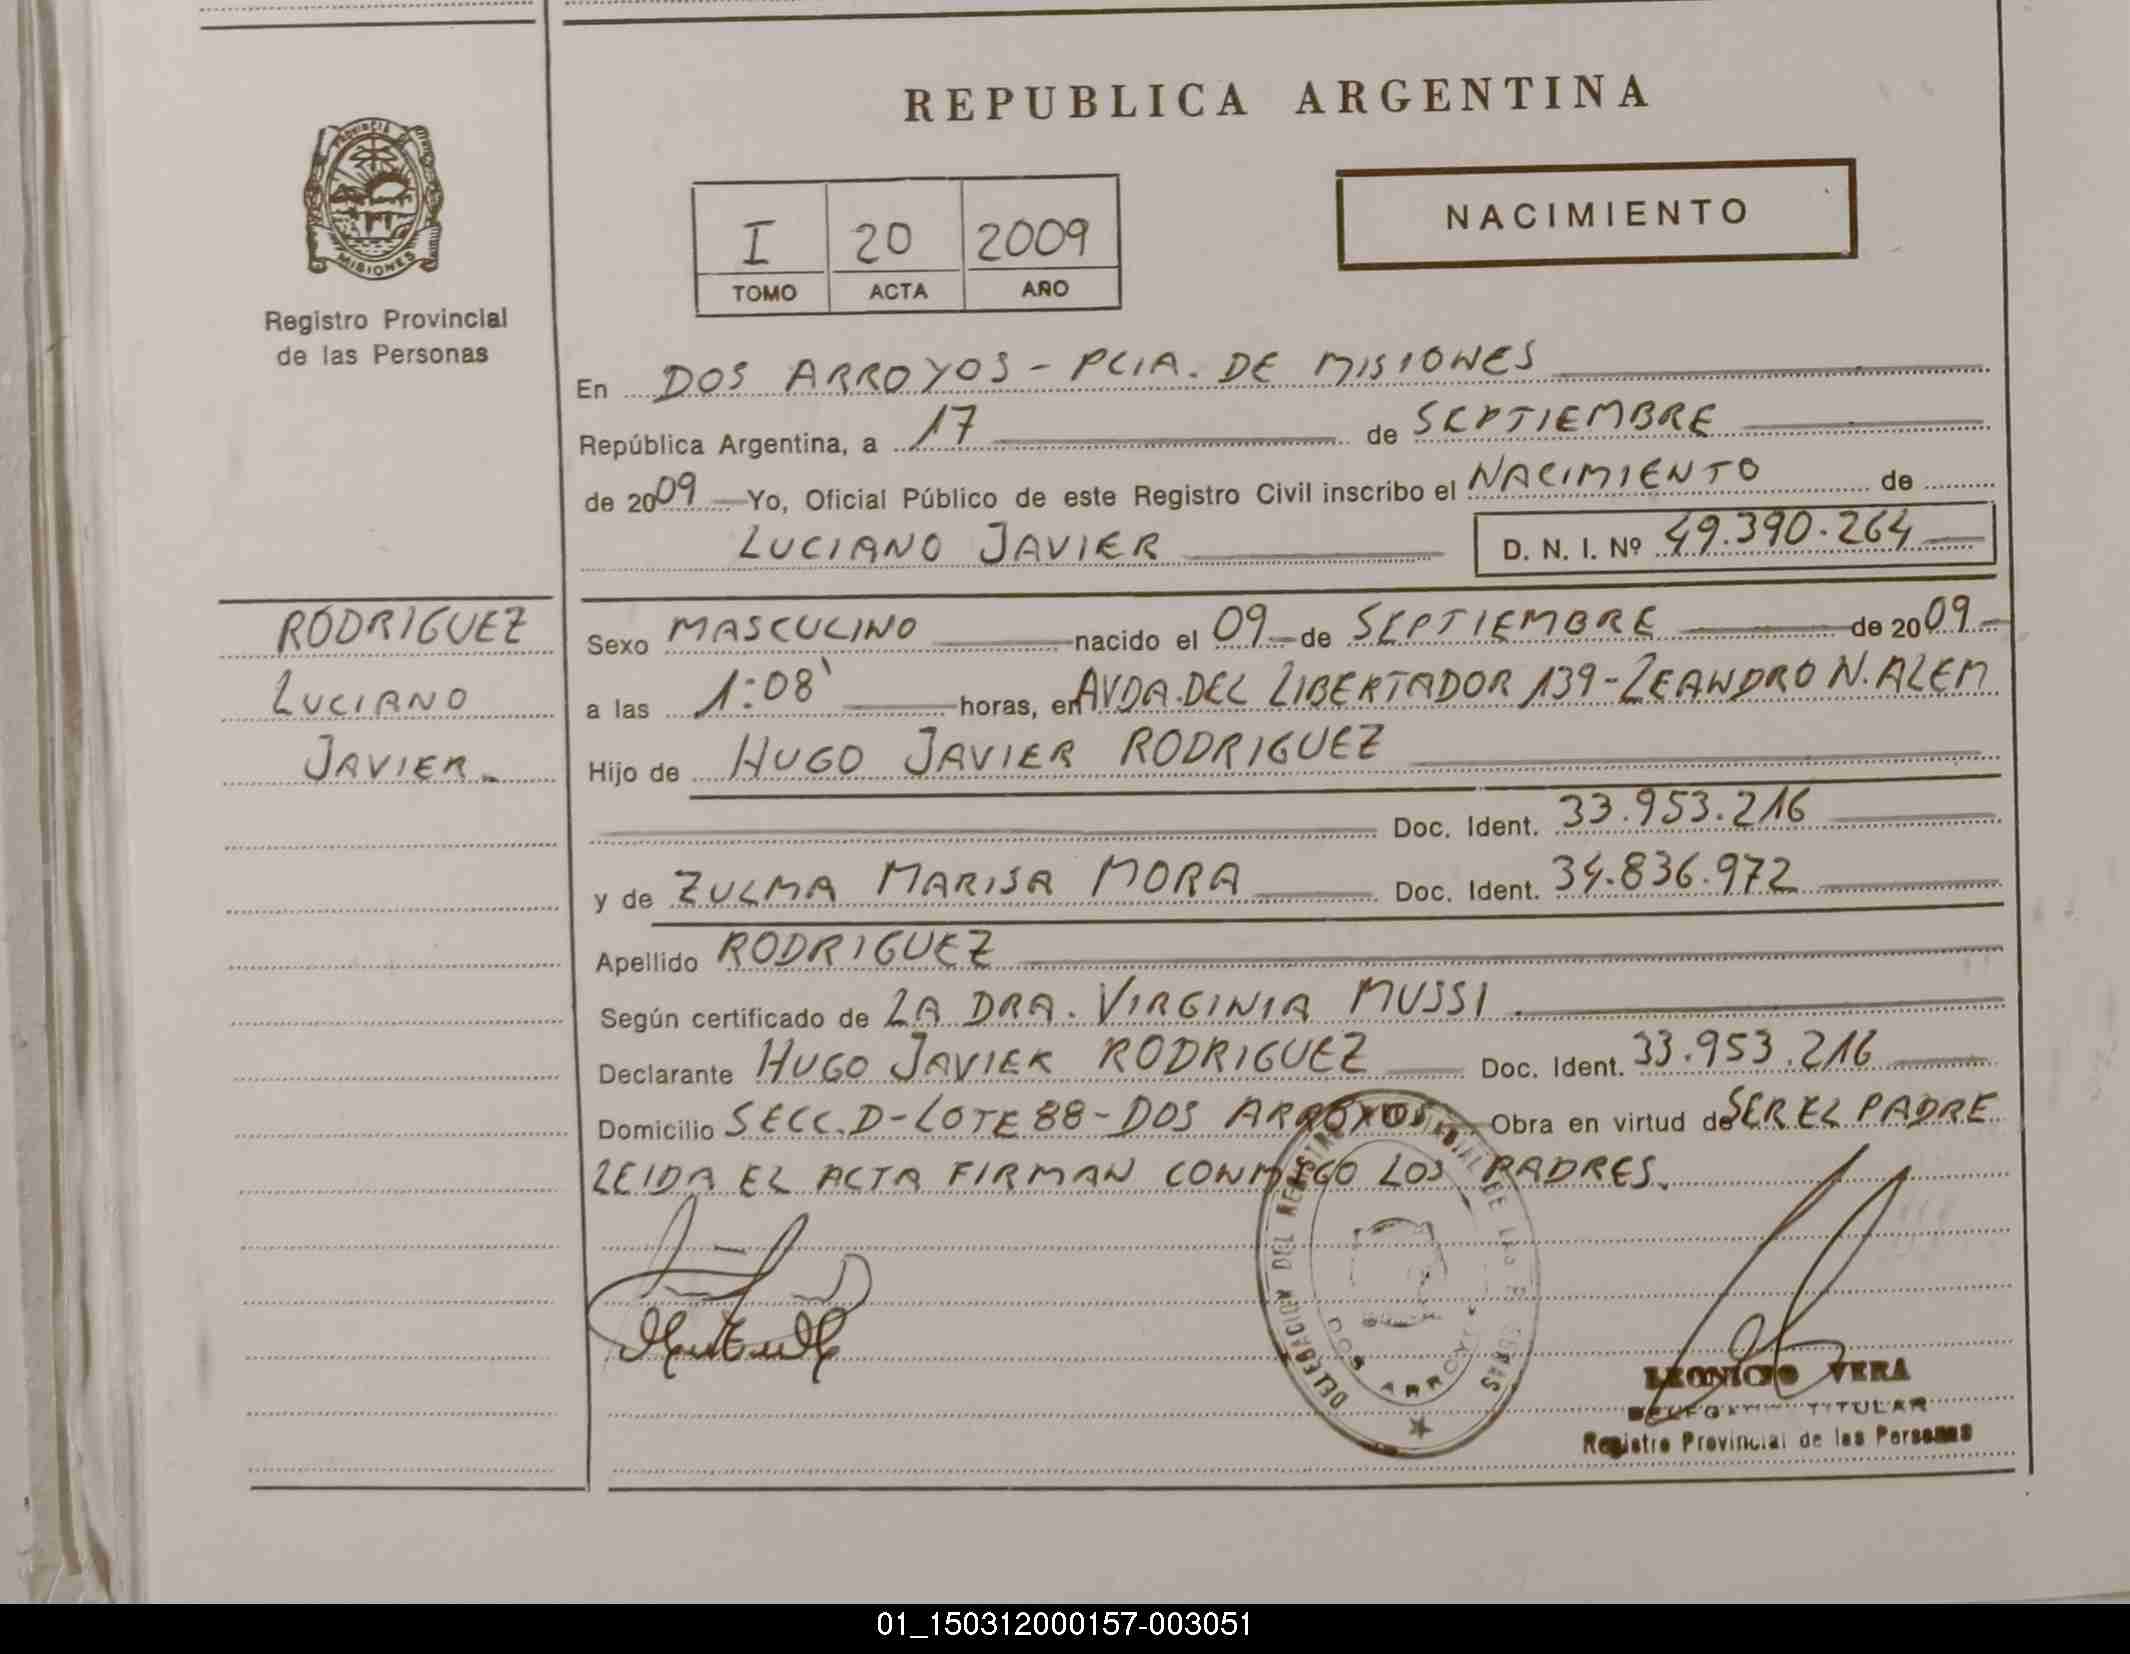 REPUBLICA ARGENTINA
PROVINCIA DE
MISIONES
Registro Provincial
de las Personas
I 20 2009
TOMO ACTA AÑO
NACIMIENTO
En DOS ARROYOS - PCIA. DE MISIONES
República Argentina, a 17 de SEPTIEMBRE
de 2009 Yo, Oficial Público de este Registro Civil inscribo el NACIMIENTO de
LUCIANO JAVIER D. N. I. Nº 49.390.264
RODRIGUEZ
LUCIANO
JAVIER.
Sexo MASCULINO nacido el 09 de SEPTIEMBRE de 2009
a las 1:08' horas, en AVDA. DEL LIBERTADOR 139 - LEANDRO N. ALEM
Hijo de HUGO JAVIER RODRIGUEZ
Doc. Ident. 33.953.216
y de ZULMA MARISA MORA Doc. Ident. 34.836.972
Apellido RODRIGUEZ
Según certificado de LA DRA. VIRGINIA MUSSI
Declarante HUGO JAVIER RODRIGUEZ Doc. Ident. 33.953.216
Domicilio SECC. D - LOTE 88 - DOS ARROYOS Obra en virtud de SER EL PADRE
LEIDA EL ACTA FIRMAN CONMIGO LOS PADRES.
DELEGACION DEL REGISTRO PROVINCIAL DE LAS PERSONAS
DOS ARROYOS
LEONICIO VERA
DELEGADO TITULAR
Registro Provincial de las Personas
01_150312000157-003051